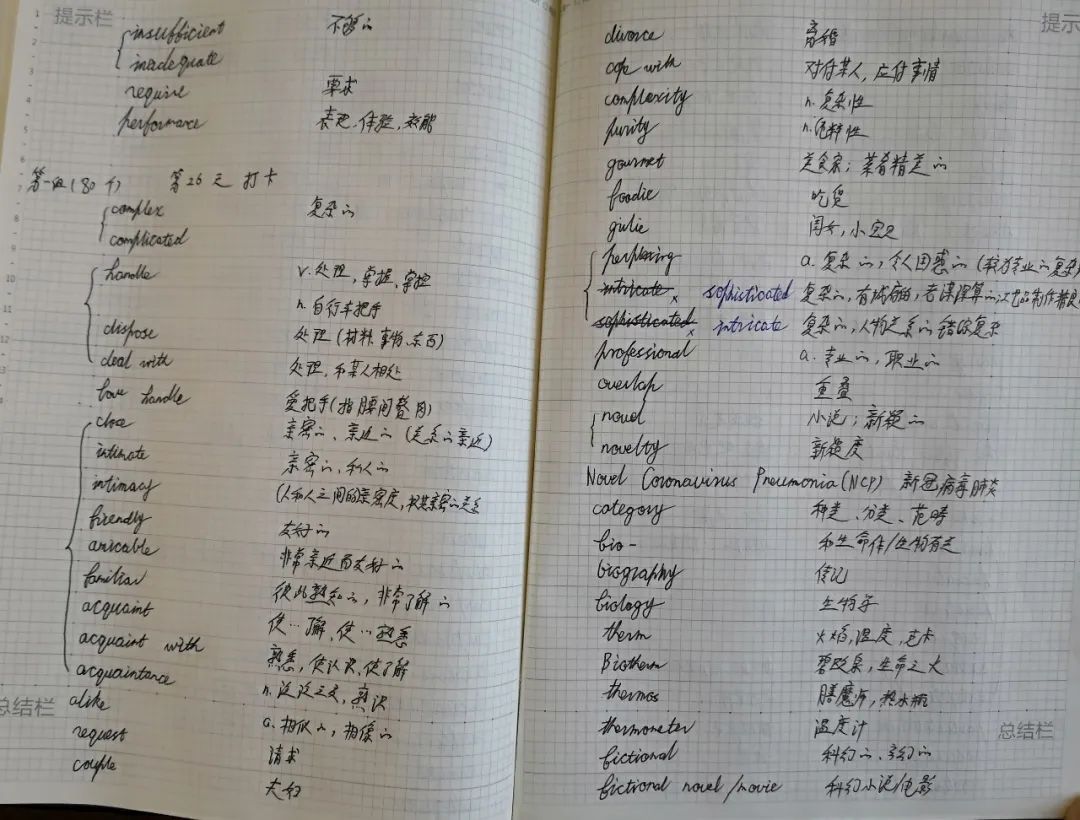 提示栏
insufficient 不够的
inadequate
require 要求
performance 表现,体验,效能
第一组(80个) 第26天 打卡
complex 复杂的
complicated
handle v.处理,掌握,掌控
n.自行车把手
dispose 处理(材料,事物,东西)
deal with 处理,和某人相处
love handle 爱把手(指腰间赘肉)
close 亲密的、亲近的(关系的亲近)
intimate 亲密的,私人的
intimacy (人和人之间的亲密度,极其亲密的关系
friendly 友好的
amicable 非常亲近而友好的
familiar 彼此熟知的,非常了解的
acquaint 使…了解,使…熟悉
acquaint with 熟悉,使认识,使了解
acquaintance n.泛泛之交,熟识
alike a.相似的,相像的
request 请求
couple 夫妇
总结栏
提示
divorce 离婚
cope with 对付某人,应付事情
complexity n.复杂性
purity n.纯粹性
gourmet 美食家;菜肴精美的
foodie 吃货
girlie 闺女,小宠儿
perplexing a.复杂的,令人困惑的(较为专业的复杂)
intricate sophisticated 复杂的,有城府的,老谋深算的
sophisticated intricate 复杂的,人物关系的错综复杂
professional a.专业的,职业的
overlap 重叠
novel 小说;新颖的
novelty 新颖度
Novel Coronavirus Pneumonia(NCP) 新冠病毒肺炎
category 种类、分类、范畴
bio- 和生命体/生物有关
biography 传记
biology 生物学
therm 火焰,温度,克卡
Biotherm 碧欧泉,生命之火
thermos 膳魔师,热水瓶
thermometer 温度计
fictional 科幻的、玄幻的
fictional novel/movie 科幻小说/电影
总结栏